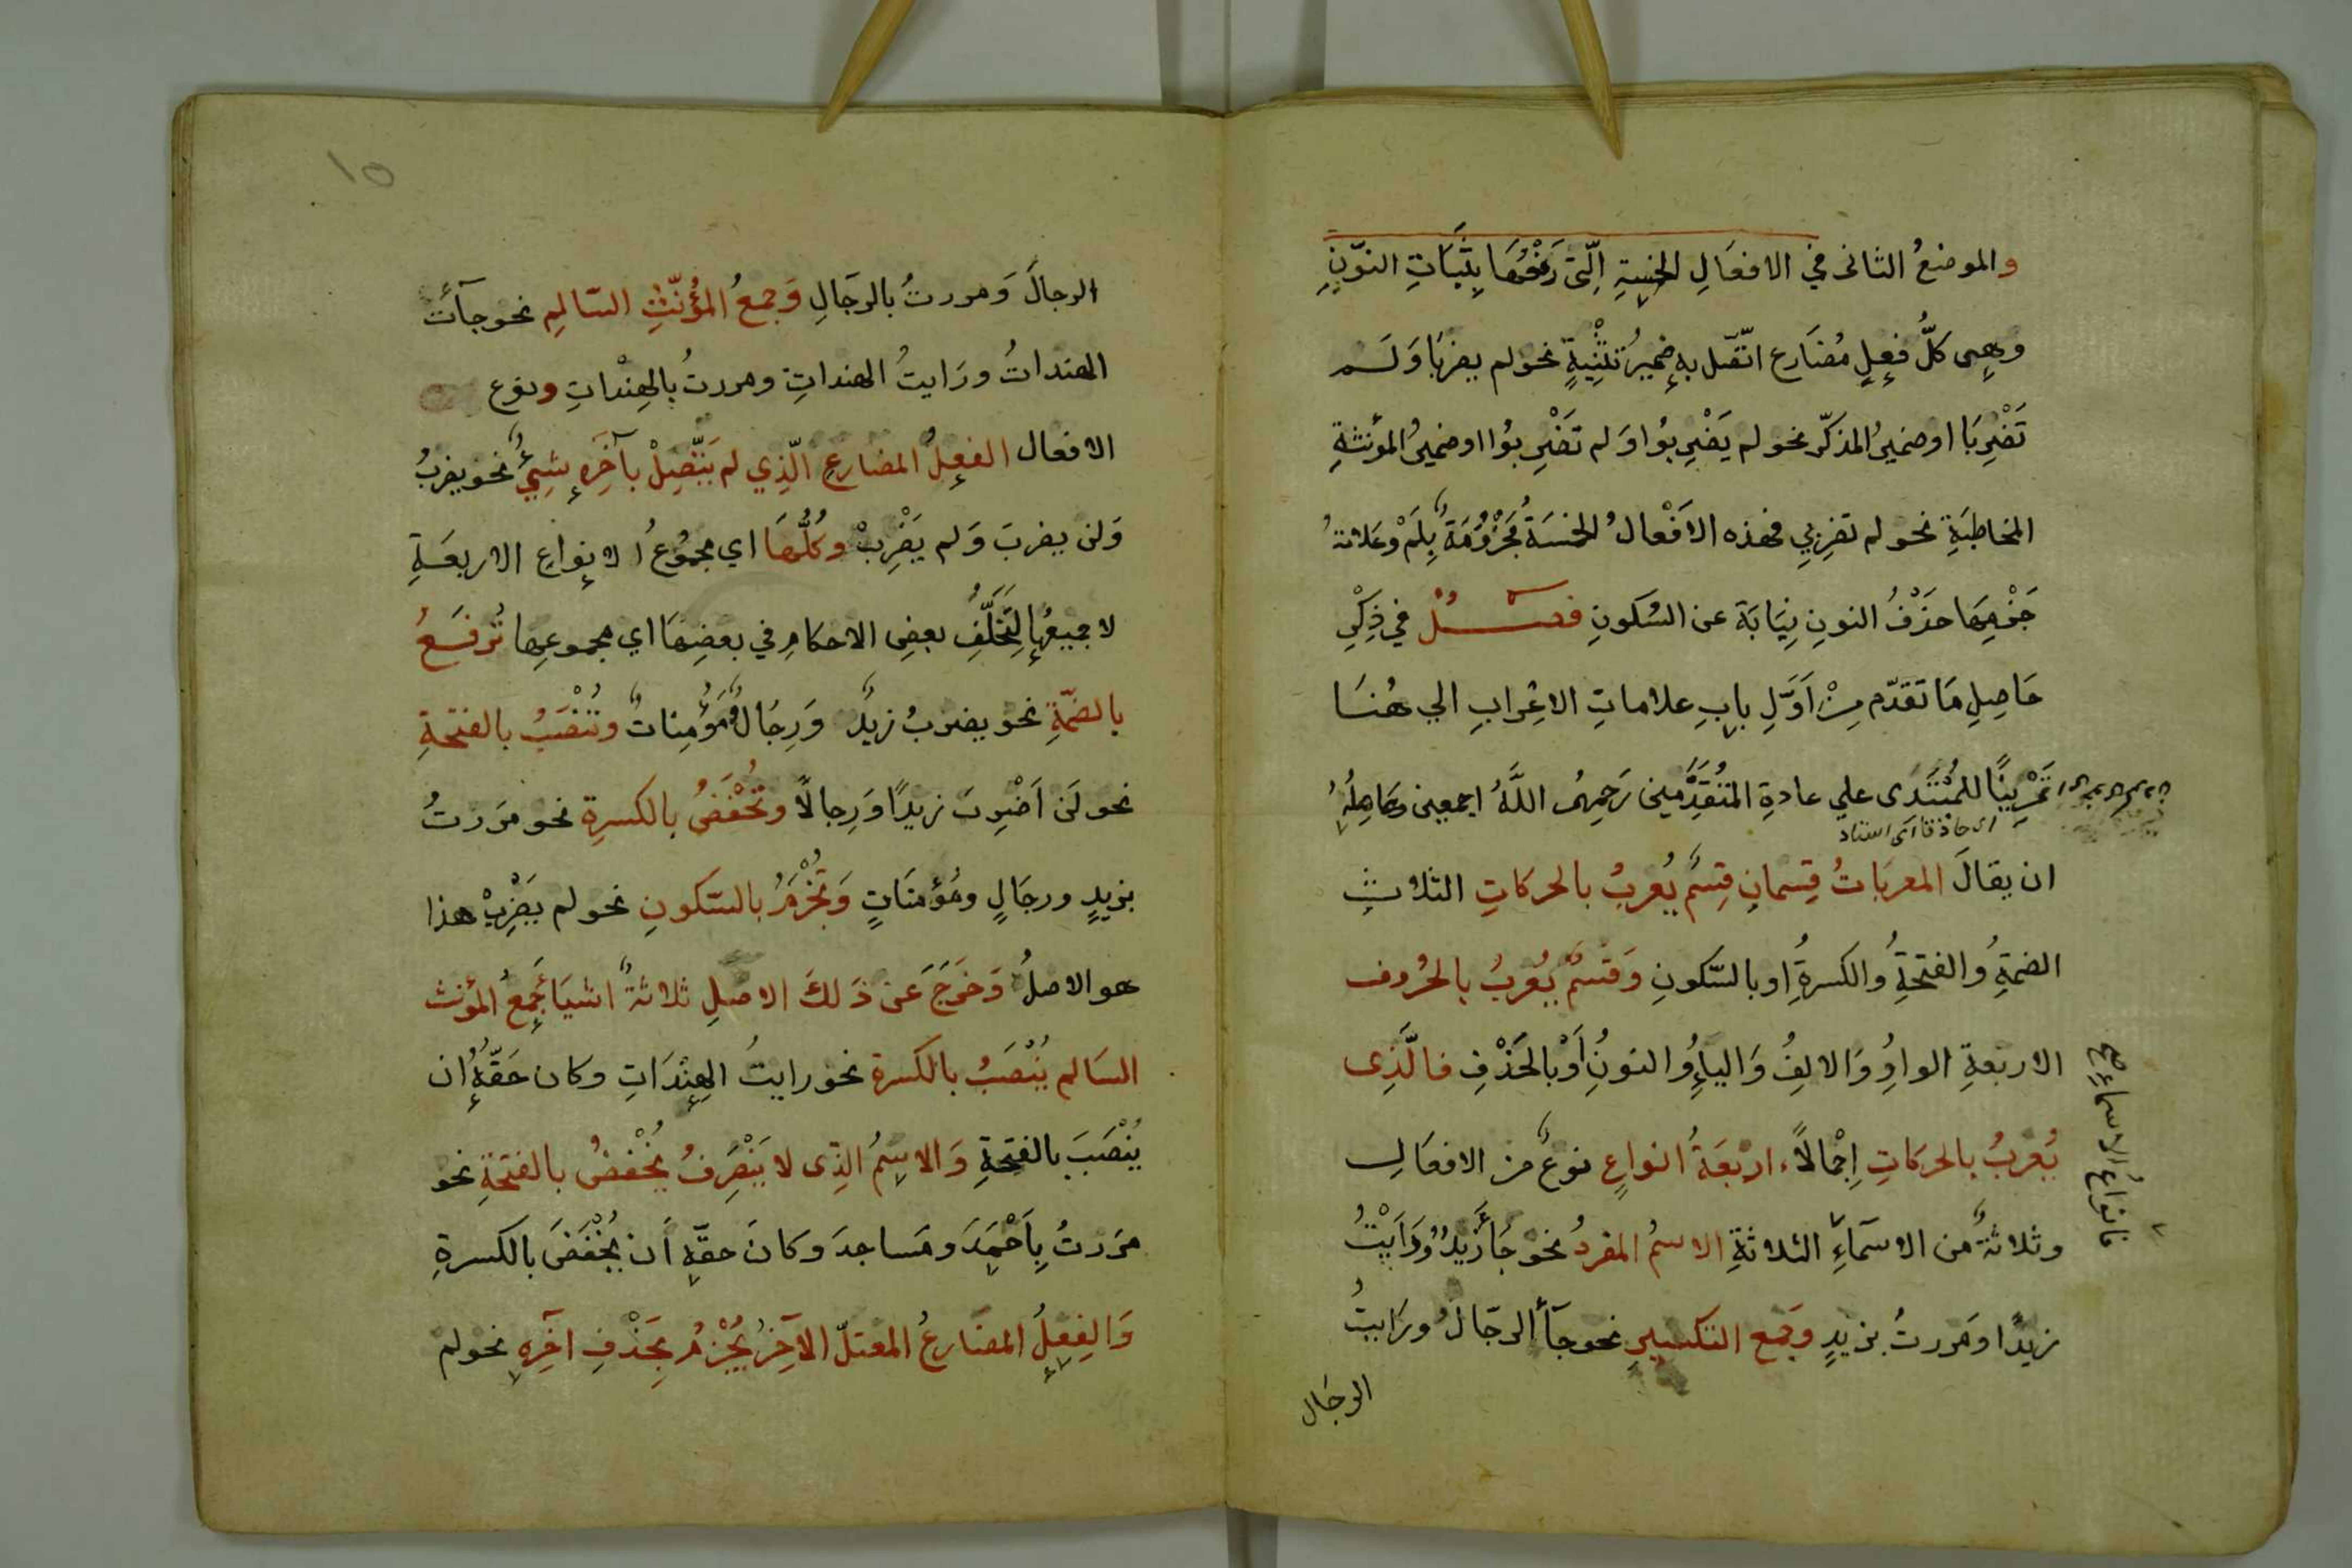 والموضعُ الثانى في الافعَالِ الخمسةِ الّتىَ رَفْعُهَا بِثَبَاتِ النوّنِ
وهِىَ كلُّ فِعلٍ مُضَارع اتّصَل بهِ ضميرُ تثْنِيةٍ نحو لم يضربَا وَلَم
تَضْرِبَا او ضميرُ المذكّر نحو لم يَضْرِبوُا وَلم تَضْرِبوُا او ضميرُ المؤنثةِ
المخاطبَةِ نحو لم تضرِبِي فهذه الاَفْعالُ الخمسَةُ مَجْزُومَةٌ بِلَمْ وعَلامةُ
جَزْمِهَا حَذْفُ النونِ نِيَابَة عن السُكونِ فصــلٌ في ذِكْرِ
حَاصِلِ مَا تقدّم مِنْ اَوَّلِ بابِ علاماتِ الاعِْرابِ الي هُنَا
تَمْرِينًا للمُبْتَدى علي عادةِ المتُقَدِّمَينِ رَحِمهُم اللَّهُ اجمعين وحَاصِلُهُ
اى حاذقا اى استاد
ان يقالَ المعربَاتُ قِسمانِ قِسمٌ يُعربُ بالحركَاتِ الثلاثِ
الضمةِ والفتحةِ والكسرةِ او بالسّكونِ وَقسمٌ يُعْربُ بالحُروف
الاربعةِ الواوِ وَالالفِ وَالياءِ والنونِ اَوْ بالحَذْفِ فالَّذِى
يُعْربُ بالحركَاتِ اِجْمالاً اربَعَةُ انواعٍ نوعٌ من الافعَالِ
وثلاثةٌ من الاسمَاءِ الثلاثةِ الاسمُ المفردُ نحو جَأَ زَيدٌ وَرَاَيْتُ
زيدًا ومَررتُ بزيدٍ وجَمع التكسيرِ نحو جَأَ الرجَالُ ورَايتُ
الرجَال
فانواعُ الاسماءِ صح
الرجالَ وَمررتُ بالرجَالِ وَجمعُ المؤُنّثِ السّالمِ نحو جآئَت
الهنداتُ ورَايتُ الهنداتِ ومررتُ بالهِنْداتِ ونوع
الافعال الفعِلُ المضارعِ الّذِي لم يَتّصِلْ بآخَرِهِ شيءٌ نحو يضربُ
وَلن يضربَ وَلم يَضْرِبْ وكُلُّهَا اي مجموُعُ الانواعِ الاربعَةِ
لا جميعُها لِتَخَلّفِ بعضِ الاحكامِ في بعضِهَا اي مجموعِها تُرفَعُ
بالضمّةِ نحو يضربُ زيدٌ وَرِجَالٌ وَمُؤَمِناتٌ وتُنْصَبُ بالفتحةِ
نحو لَن اَضْرِبَ زيدًا وَرِجالًا وتُخْفَضُ بالكسرةِ نحو مَررتُ
بزيدٍ ورجَالٍ ومُؤمنَاتٍ وَتُجْزَمُ بالسّكونِ نحو لم يَضْرِبْ هذا
هو الاصلُ وَخَرَجَ عَن ذَلكَ الاصلِ ثلاثةٌ اشيَأ جَمعُ المؤنث
السَالم يُنْصَبُ بالكسرةِ نحو رايتُ الهِنْدَاتِ وكان حَقُّهُ ان
يُنْصَبَ بالفتحةِ وَالاسمُ الذِى لا يَنْصَرِفُ يُخْفضُ بالفتحةِ نحو
مررتُ بِاَحْمَدَ ومَساجدَ وكانَ حقّهِ اَن يُخْفَضَ بالكسرةِ
وَالفعِلُ المضَارعُ المعتلّ الآخِرِ يُجْزمُ بِحَذْفِ آخِرِهِ نحو لم
١٥